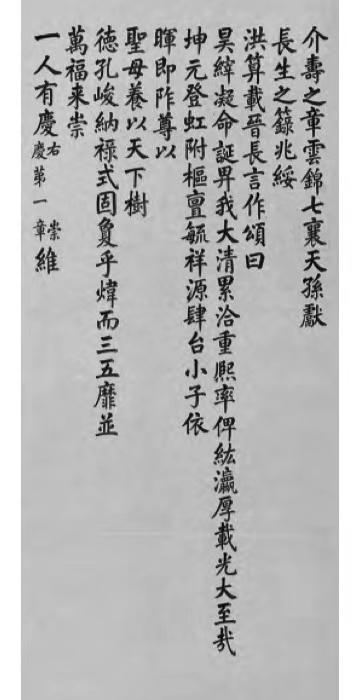 介壽之章雲錦七襄天孫獻
長生之籙兆綏
洪算載晉長言作頌曰
昊縡凝命誕畀我大清累洽重熙率俾紘瀛厚載光大至哉
坤元登虹附樞亶毓祥源肆台小子依
暉即阼尊以
聖母養以天下樹
德孔峻納祿式固敻乎煒而三五靡並
萬福来崇
一人有慶右慶第一章崇維